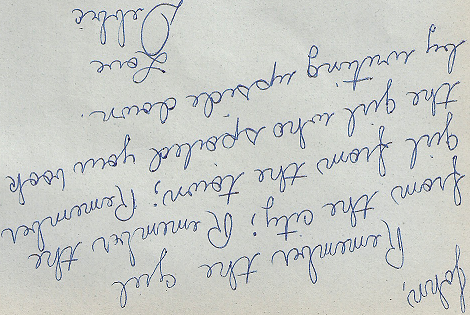 John,
Remember the girl
from the city; Remember the
girl from the town; Remember
the girl who spoiled your book
by writing upside down.
Love
Debbie